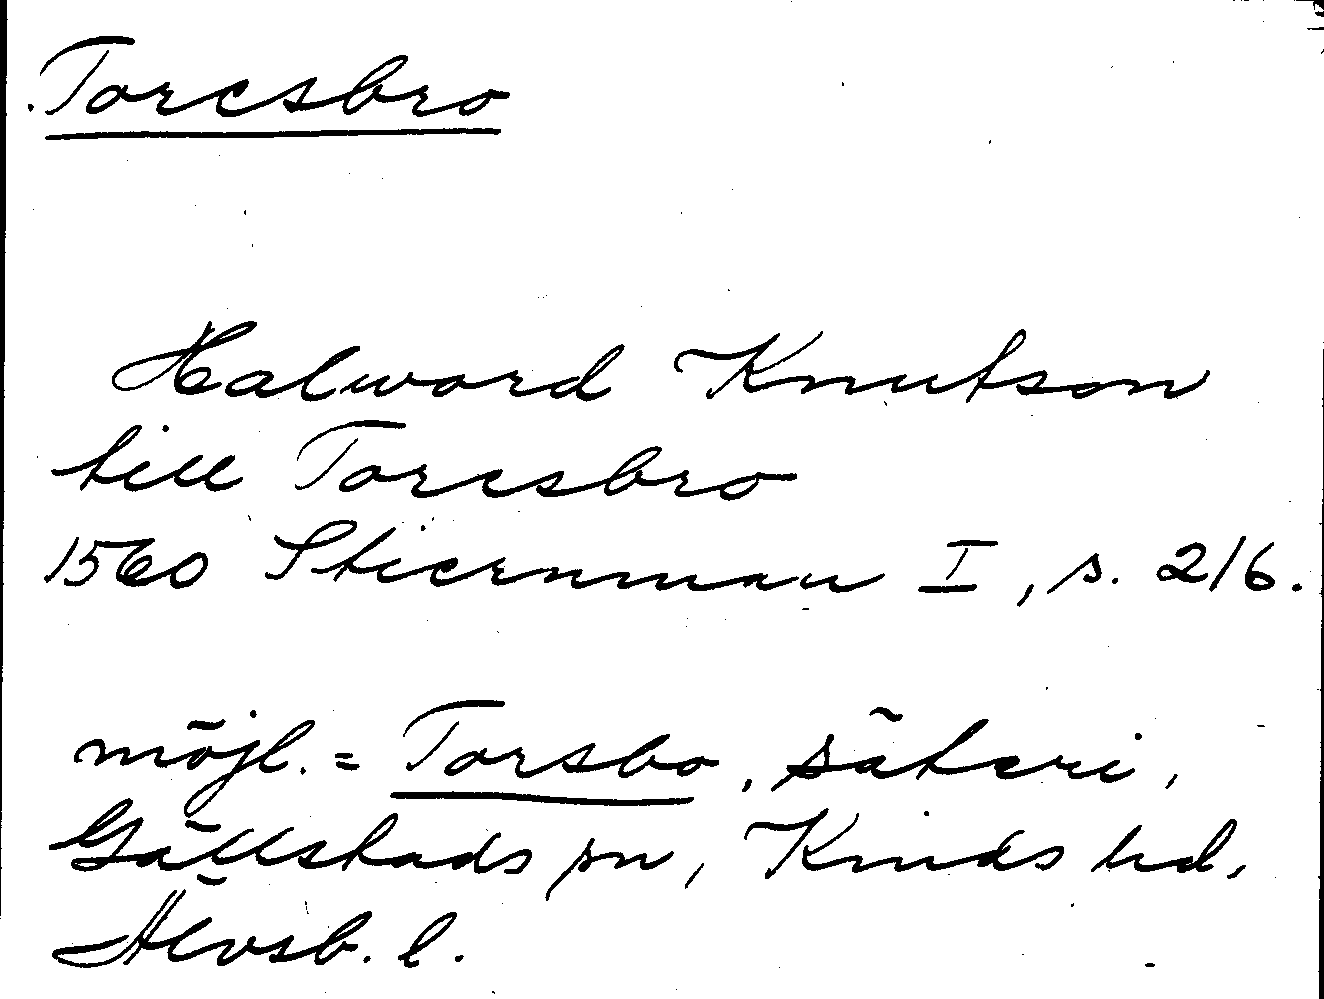 Toresbro
Halword Knutson
till Toresbro
1560 Stiernman I, s. 216.
möjl. = Torsbo, säteri,
Gällstads sn, Kinds hd,
Älvsb. l.